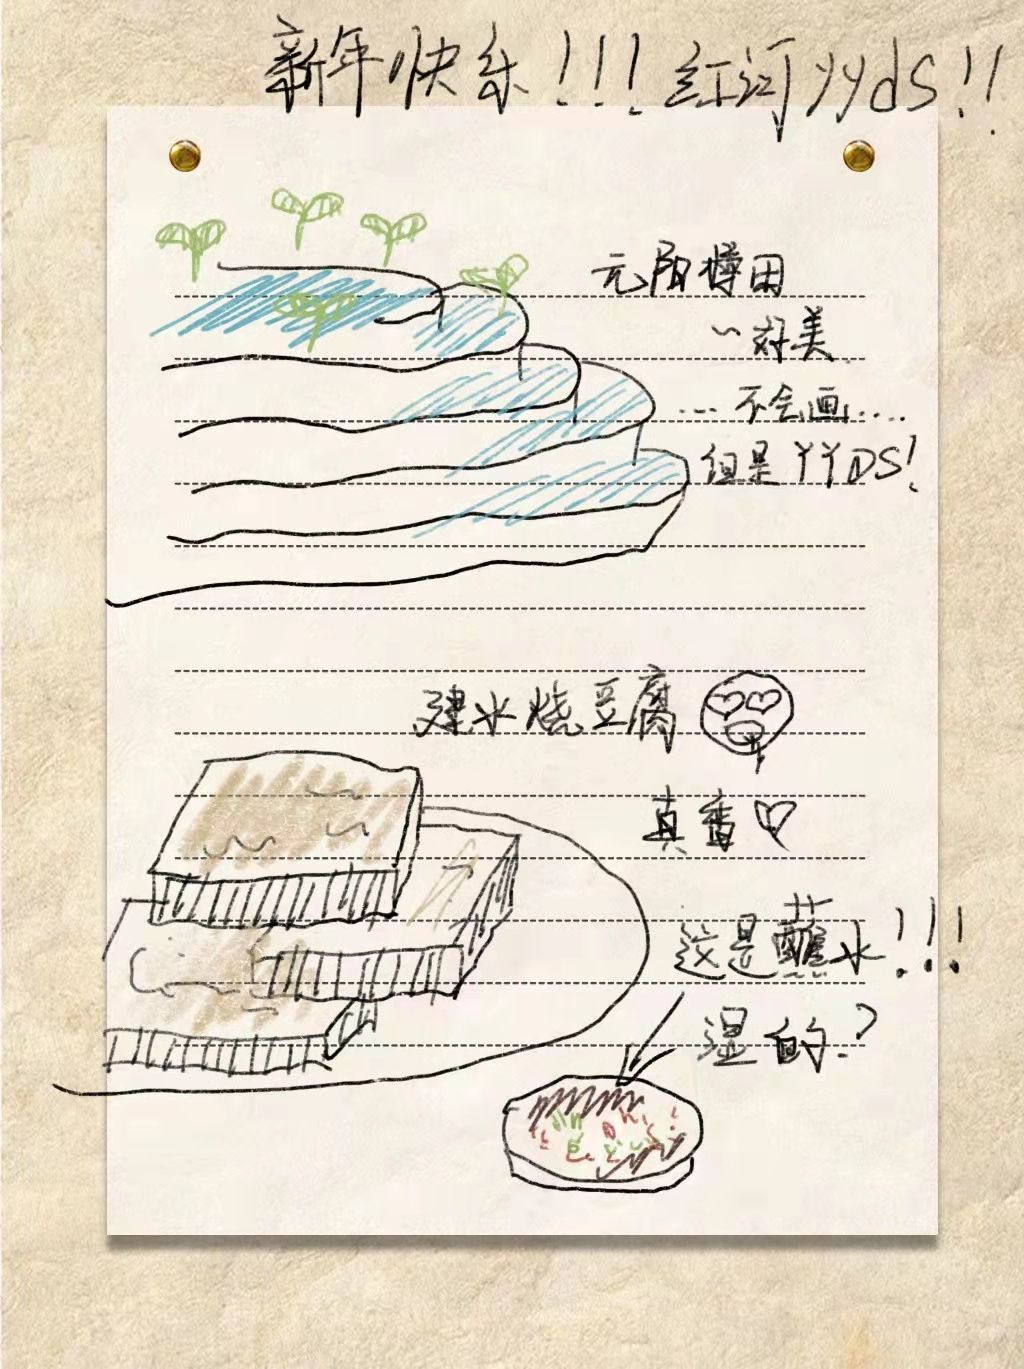 新年快乐!!!红河yyds!!
元阳樽田
~好美
...不会画....
但是YYDS!
建水烧豆腐
真香♡
这是蘸水!!!
湿的?